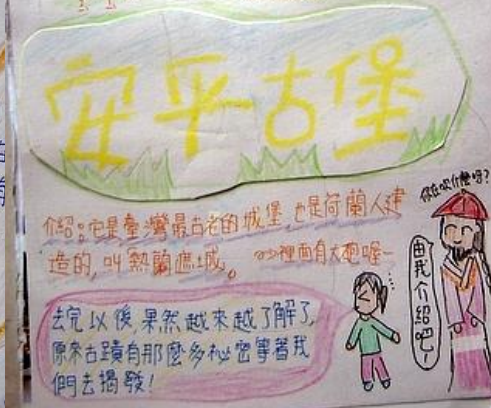 安平古堡
你在吹什麼呀?
介紹:它是臺灣最古老的城堡,也是荷蘭人建
造的,叫熱蘭遮城。
裡面有大砲喔~
由我介紹吧!
去完以後,果然越來越了解了,
原來古蹟有那麼多祕密等著我
們去揭發!